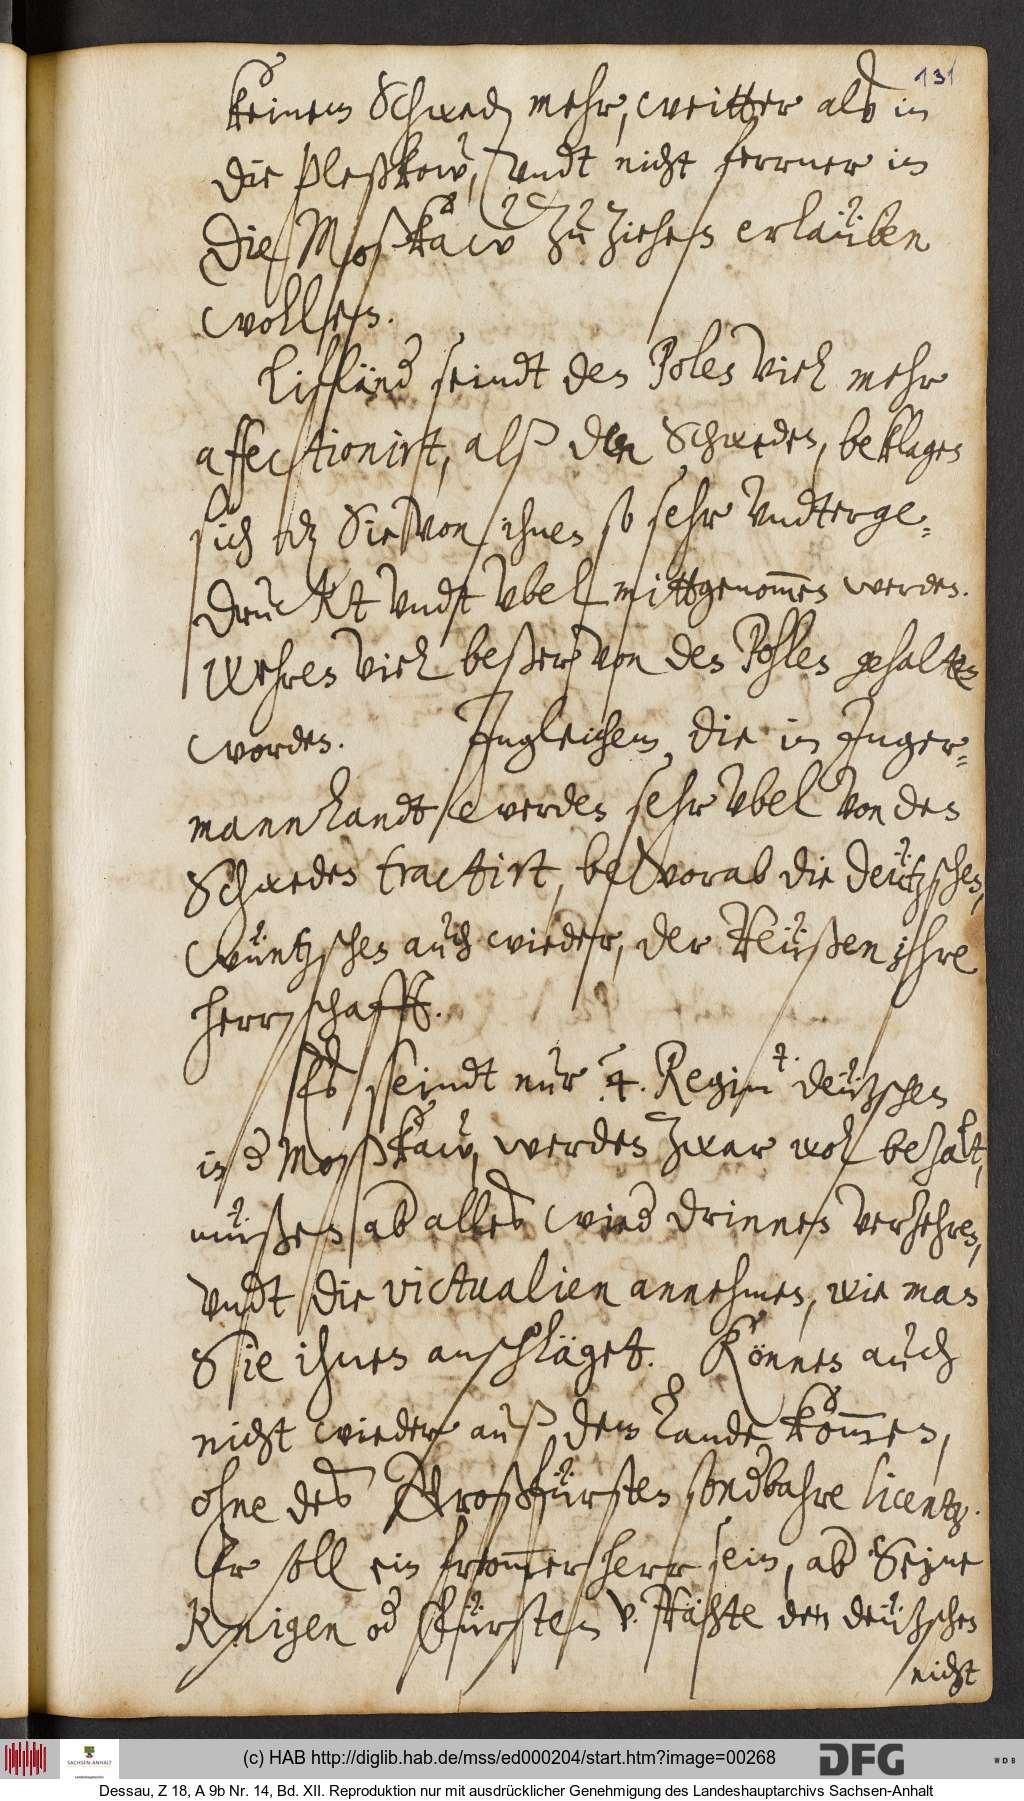 131
keinem Schwed mehr, weitter als in
die Pleßkow, undt nicht ferrner in
die Moßkaw zu ziehen erlauben
wollen.
Liffländ seindt den Polen viel mehr
affectionirt, alß den Schweden, beklagen
sich dz Sie von ihnen so sehr undterge=
druckt undt ubel mittgenom̅en werden.
Wehren viel beßer von den Pohlen gehalten
worden. Ingleichem die in Inger=
mannlandt werden sehr ubel von den
Schweden tractirt, bevorab die deutzschen,
wüntzschen auch wieder, der Reußen ihre
herrschafft.
Es seindt nur 4. Regimt. deutzschen
in d Moßkaw, werden zwar wol behalt,
müßen ab alles wied drinnen verzehren,
undt die victualien annehmen, wie man
Sie ihnen anschläget. Können auch
nicht wieder auß dem Lande kom̅en,
ohne des Großfürsten sondbahre licentz.
Er soll ein from̅er herr sein, ab Seine
Knigen od Fürsten v. Rähte den deutzschen
nicht
(c) HAB http://diglib.hab.de/mss/ed000204/start.htm?image=00268
SACHSEN-ANHALT
DFG
WDB
Dessau, Z 18, A 9b Nr. 14, Bd. XII. Reproduktion nur mit ausdrücklicher Genehmigung des Landeshauptarchivs Sachsen-Anhalt